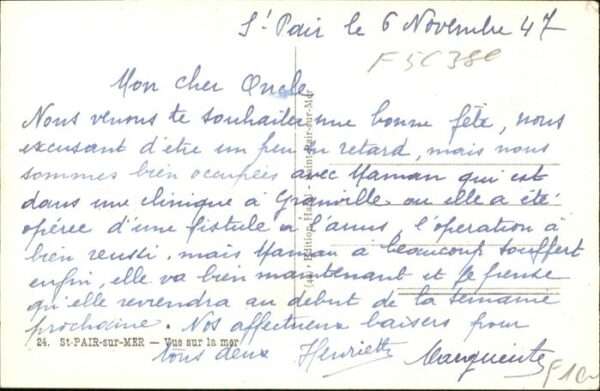 St Pair le 6 Novembre 47
F5C380
Mon cher Oncle
Nous venons te souhaiter une bonne fête, nous
excusant d'etre un peu en retard, mais nous
sommes bien occupées avec Maman qui est
dans une clinique à Granville ou elle a été
opérée d'une fistule a l'anus, l'operation à
bien reussi, mais Maman à beaucoup souffert
enfin, elle va bien maintenant et je pense
qu'elle reviendra au debut de la semaine
prochaine. Nos affectueux baisers pour
24. St-PAIR-sur-MER — Vue sur la mer
tous deux Henriette Marguerite